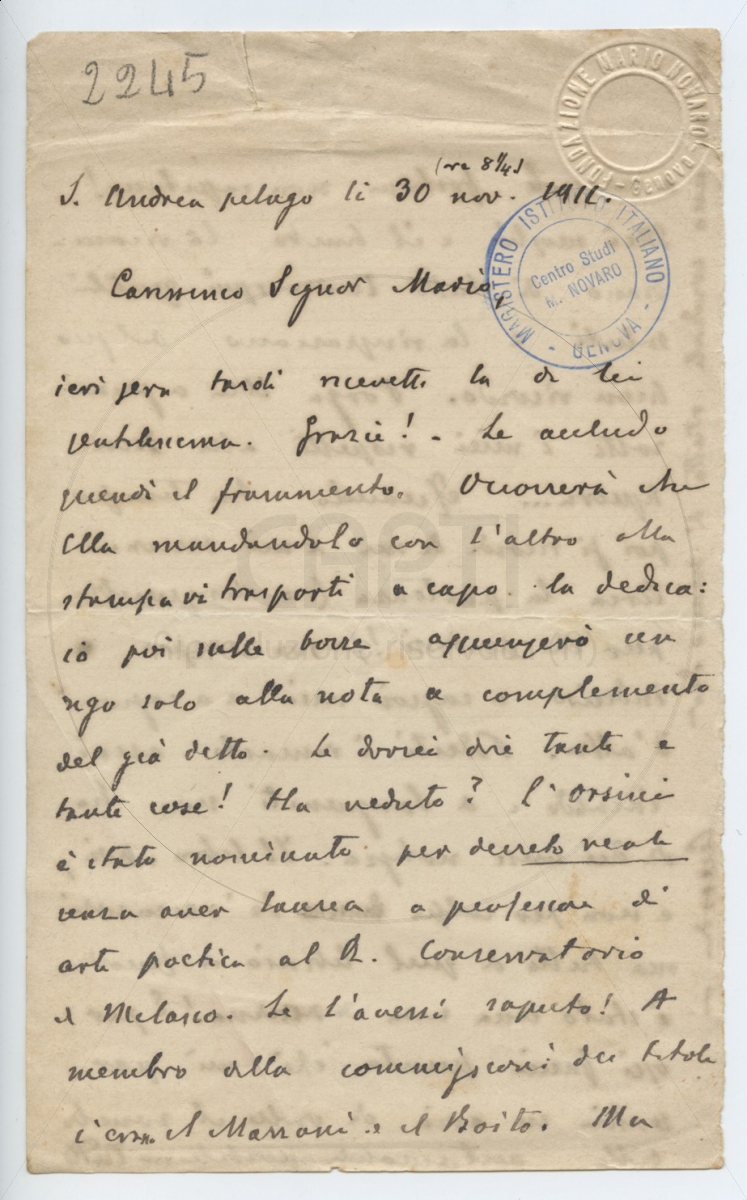 2245
FONDAZIONE MARIO NOVARO - GENOVA -
(ore 8 1/4)
S. Andrea pelago li 30 nov. 1911.
MAGISTERO ISTITUTO ITALIANO
Centro Studi
M. NOVARO
- GENOVA -
Carissimo Signor Mario,
ieri sera tardi ricevetti la di lei
gentilissima. Grazie! - Le accludo
quindi il frammento. Occorrerà che
Ella mandandolo con l'altro alla
stampa vi trasporti a capo la dedica:
io poi sulle bozze aggiungerò un
rigo solo alla nota a complemento
del già detto. Le dovrei dire tante e
tante cose! Ha veduto? l'Orsini
è stato nominato per decreto reale
senza aver laurea a professore di
arte poetica al R. Conservatorio
di Milano. Se l'avessi saputo! A
membro della commissione dei titoli
c'eran il Marradi e il Boito. Ma